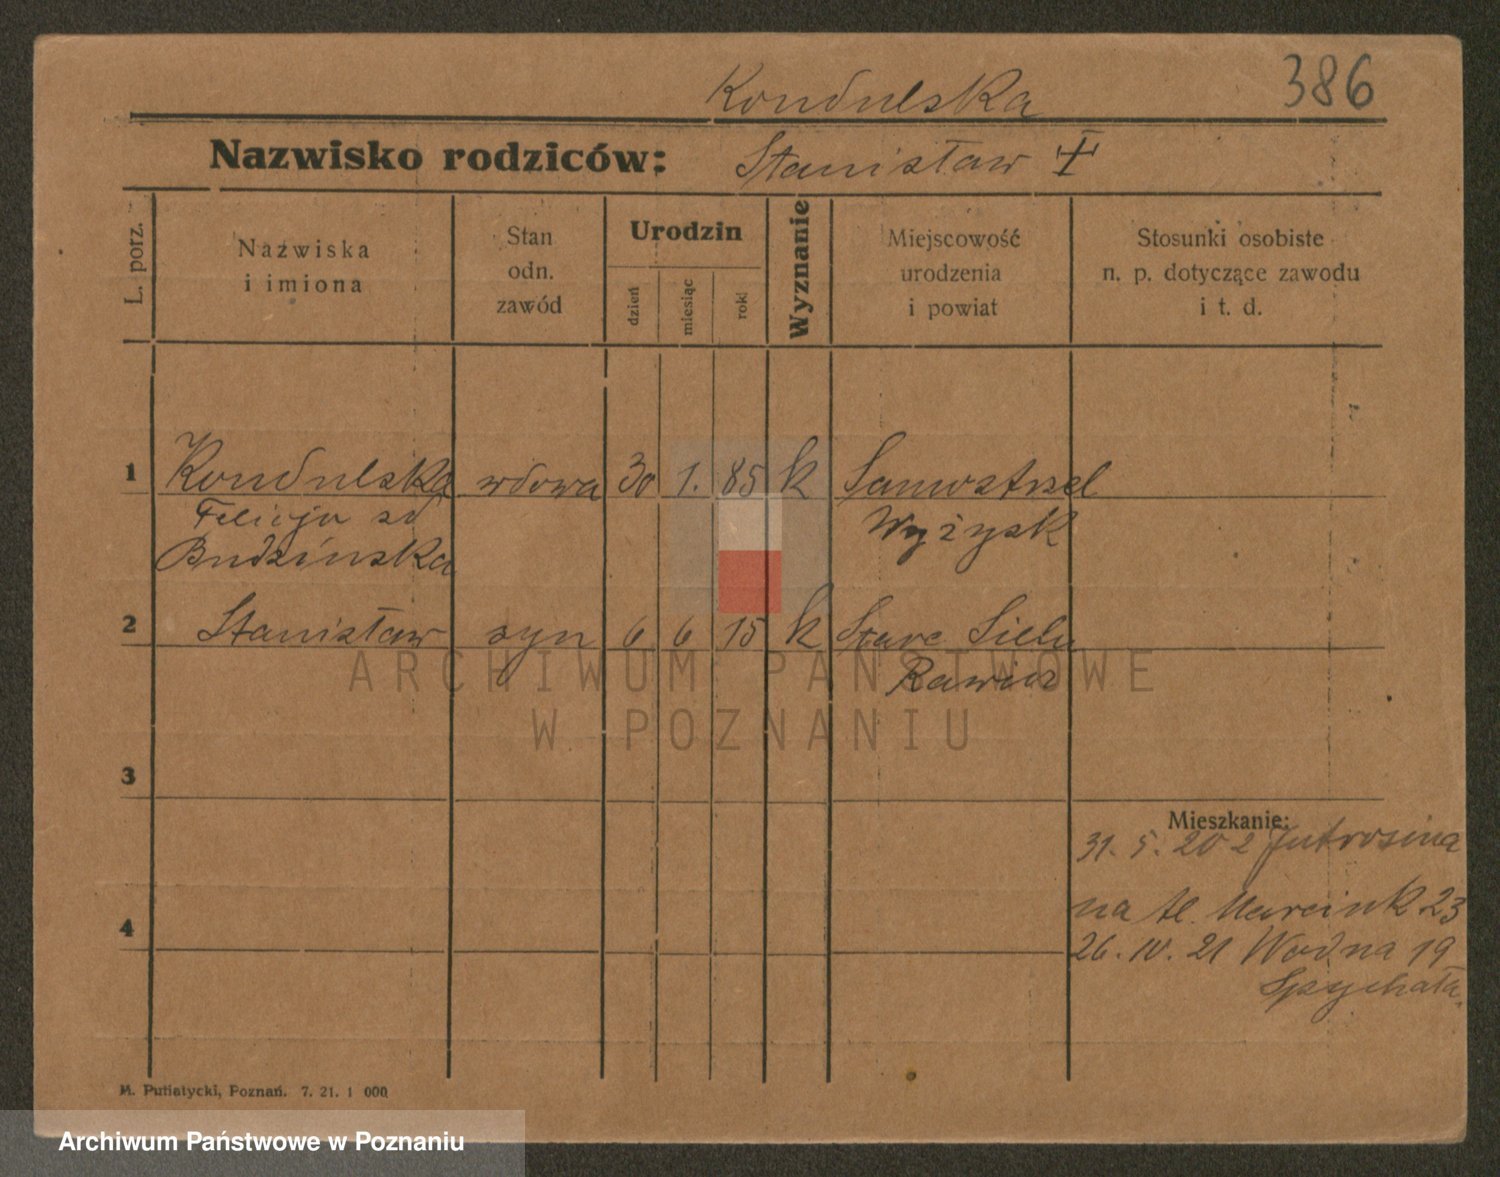 386
Kondulska
Nazwisko rodziców: Stanisław
L. porz.
Nazwiska
i imiona
Stan
odn.
zawód
Urodzin
dzień
miesiąc
rok
Wyznanie
Miejscowość
urodzenia
i powiat
Stosunki osobiste
n. p. dotyczące zawodu
i t. d.
1 Kondulska wdowa 30 1. 85 k Samostrzel
Felicja zd Wyżysk
Budzińska
2 Stanisław syn 6 6 15 k Stare Sielu
Rawicz
ARCHIWUM PAŃSTWOWE
W POZNANIU
3
Mieszkanie:
31. 5. 20 z Jutrosina
na Al. Marcink 23
4
26. IV. 21 Wodna 19
Spychała
M. Putiatycki, Poznań. 7. 21. 1 000
Archiwum Państwowe w Poznaniu